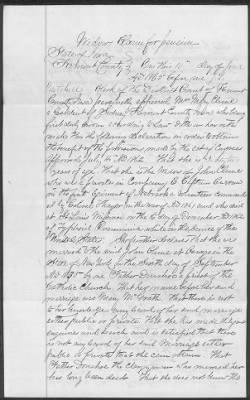 Widow Claim for pension
State of Iowa
Fremont County On this 10th day of June
AD 1865 before me
Clerk of the District Court of Fremont
County Iowa personally appeared Mrs Mary Cline
a resident of Sidney Fremont County Iowa who being
first duly sworn according to law doth on her oath
make this the following declaration in order to obtain
the benefit of the provisions made by the act of Congress
approved July 14 AD 1862 That she is
years of age That she is the widow of John Cline
who was a private in Company
in the first Regiment of Nebraska volunteers commanded
by Colonel Thayer in the war of AD 1861 and who died
at St Louis Missouri on the day of December AD 1862
of Typhoid Pneumonia while in the service of the
United States She further declares that she was
married to the said John Cline at Oswego in the
State of New York in the month of September
AD 1835 by one Father Donahoe a priest of the
Catholic Church That her name before her said
marriage was Mary McGrath That there is not
to her knowledge any record of her said marriage
either public or private That she has made diligent
enquiries and search and is satisfied that there
is not any record of her said Marriage either
public or private that she can obtain That
Father Donahoe the Clergyman who married her
has long been dead That she does not know the